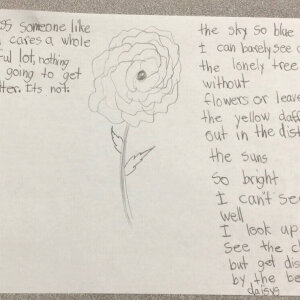 someone like
cares a whole
lot, nothing
going to get
Its not.
the sky so blue
I can barely see
the lonely tree
without
flowers or leave
the yellow
out in the
the suns
so bright
I can't see
well
I look up
see the
but get
by the
daisys